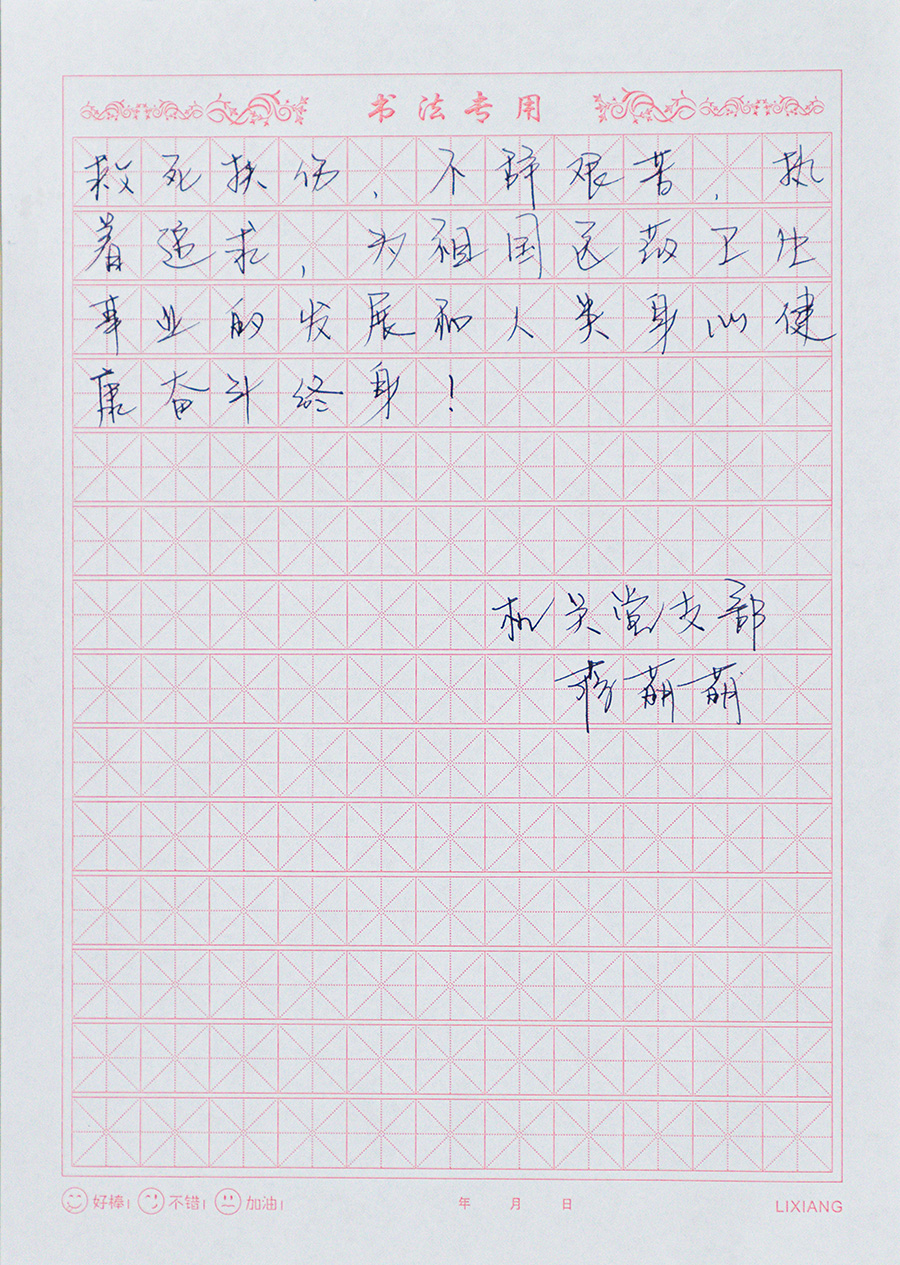 书法专用
救死扶伤,不辞艰苦,执
着追求,为祖国医药卫生
事业的发展和人类身心健
康奋斗终身!
机关党支部
蒋萌萌
好棒! 不错! 加油! 年 月 日 LIXIANG